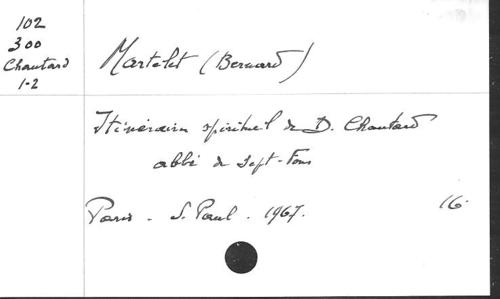 102
300
Chautard
1-2
Martelet (Bernard)
Itinéraire spirituel de D. Chautard
abbé de Sept-Fons
Paris - S. Paul - 1967.
16